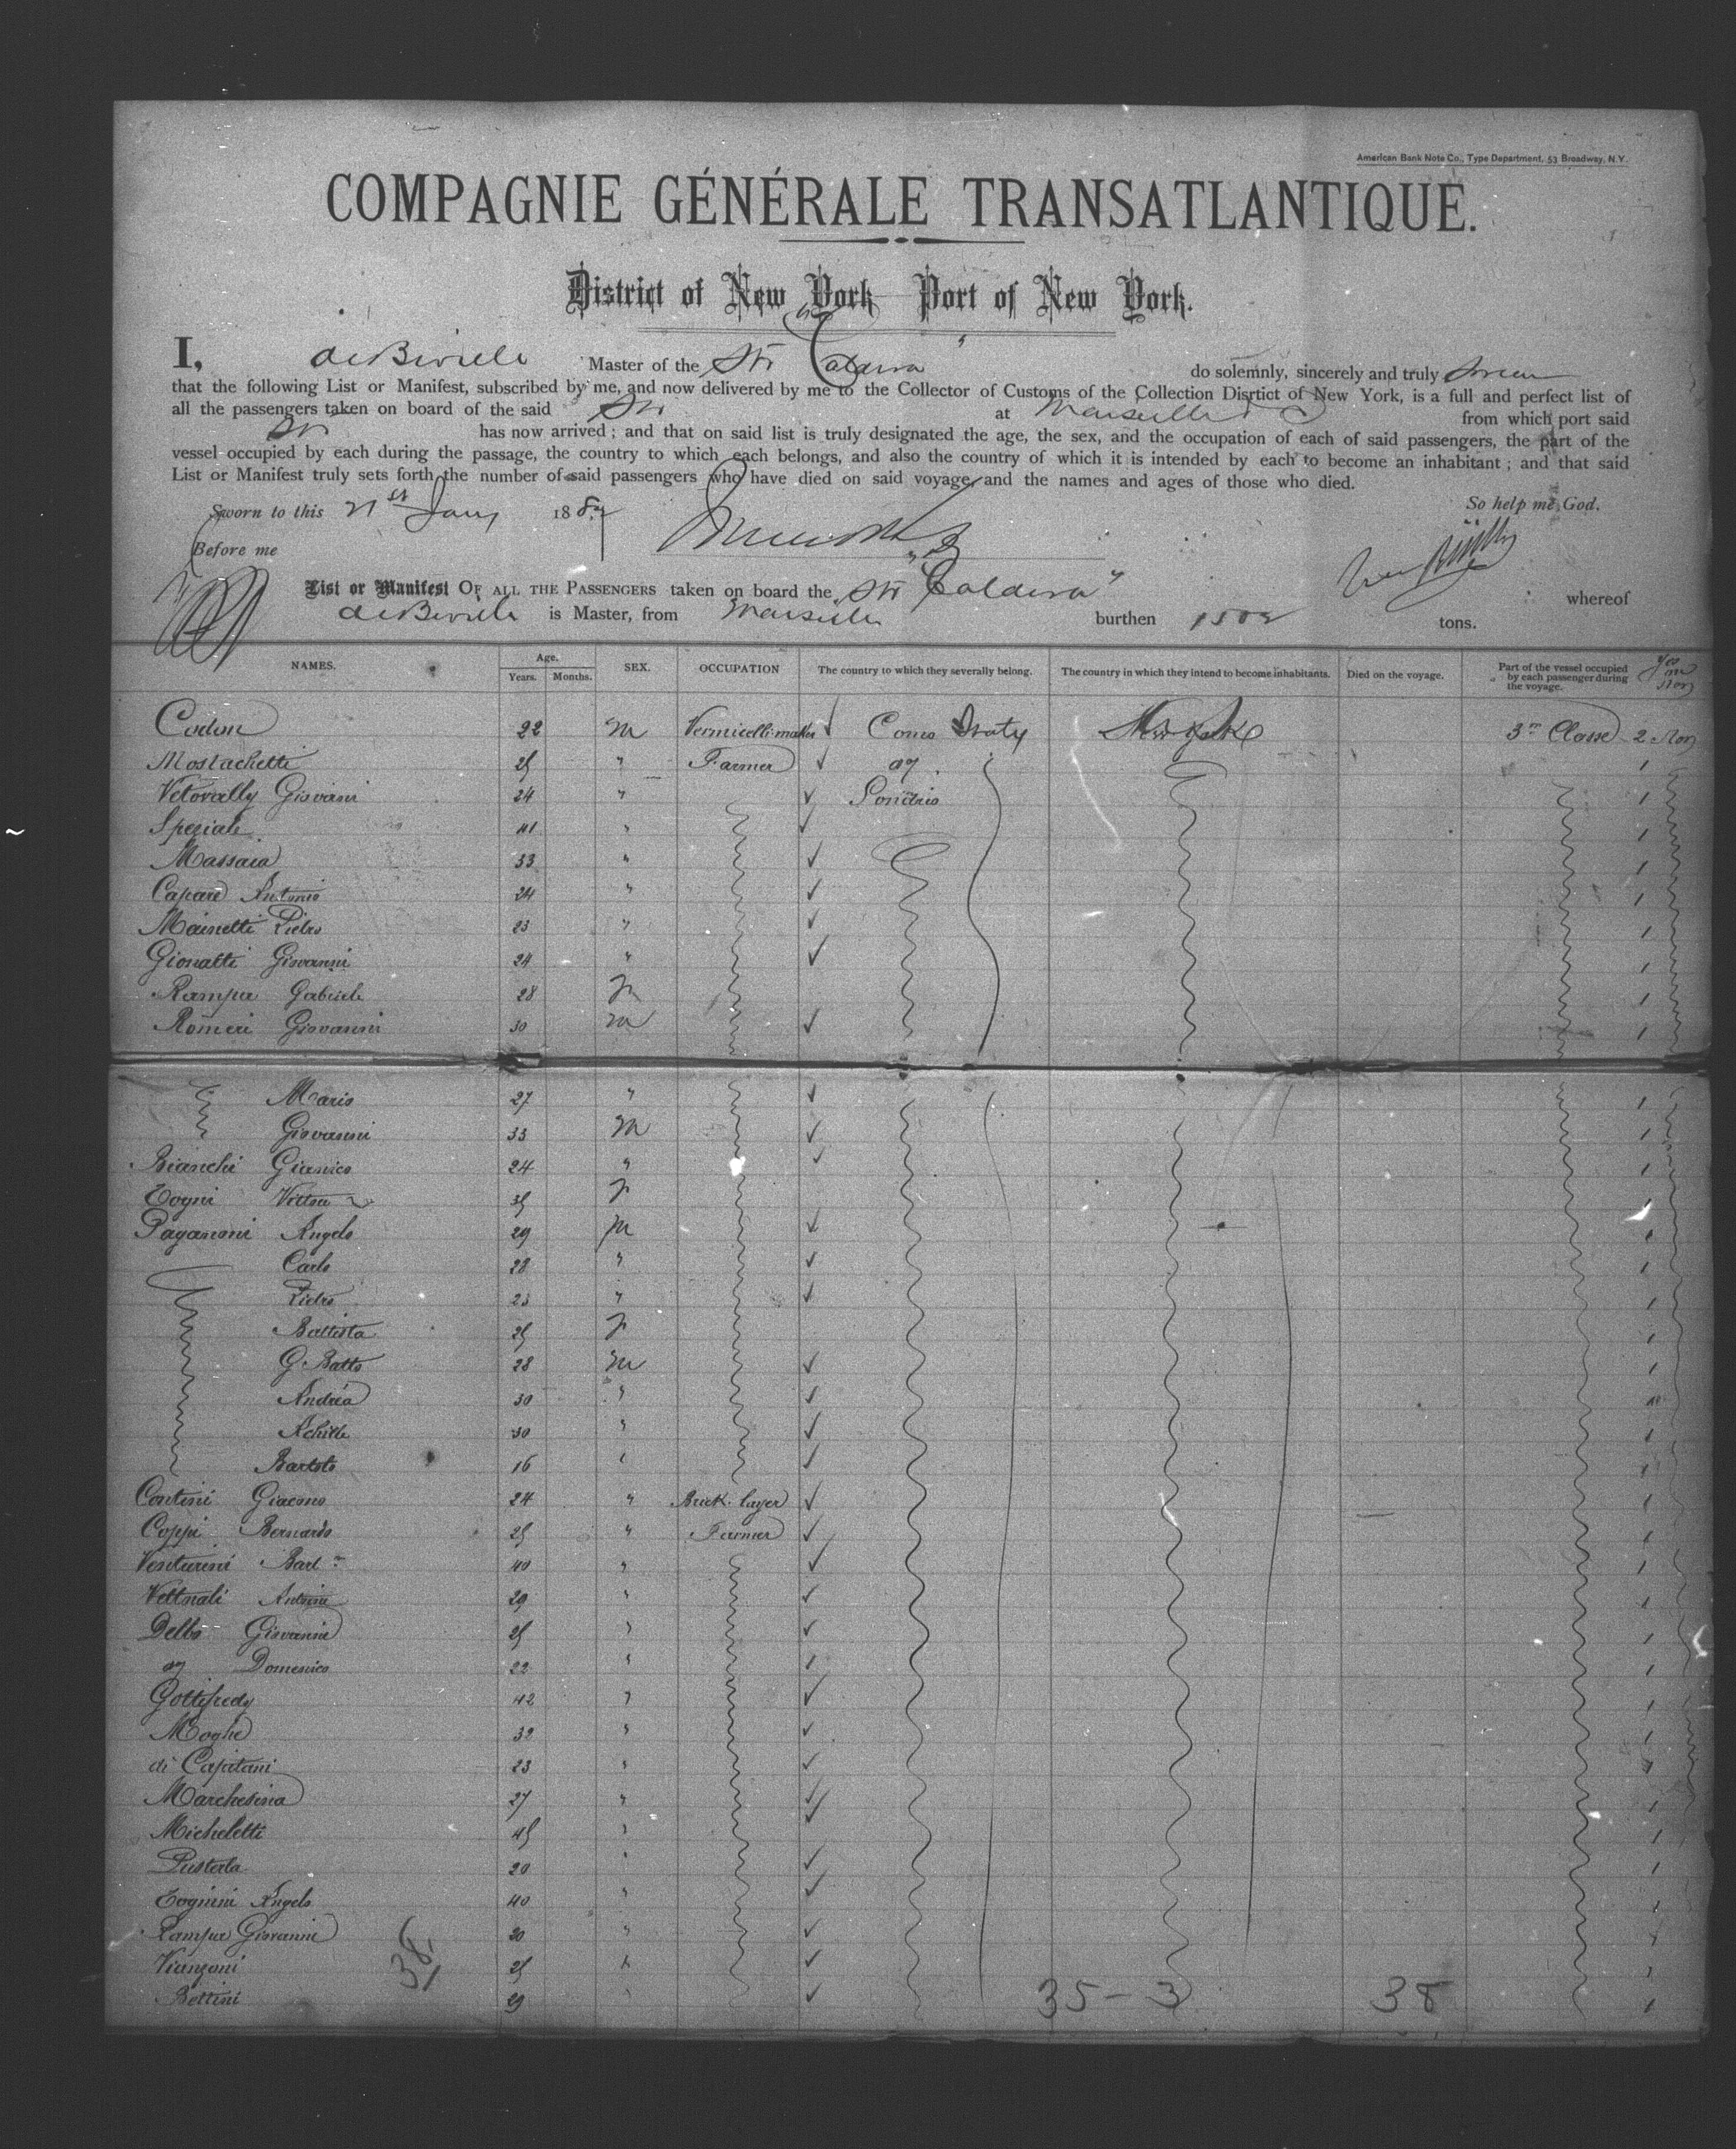 American Bank Note Co., Type Department, 53 Broadway, N.Y.
COMPAGNIE GÉNÉRALE TRANSATLANTIQUE.
District of New York Port of New York.
I, Master of the Str do solemnly, sincerely and truly swear
that the following List or Manifest, subscribed by me, and now delivered by me to the Collector of Customs of the Collection Disrtict of New York, is a full and perfect list of
all the passengers taken on board of the said Str at Marseilles from which port said
Str has now arrived; and that on said list is truly designated the age, the sex, and the occupation of each of said passengers, the part of the
vessel occupied by each during the passage, the country to which each belongs, and also the country of which it is intended by each to become an inhabitant; and that said
List or Manifest truly sets forth the number of said passengers who have died on said voyage, and the names and ages of those who died.
Sworn to this 21st Jany 1887 So help me God.
Before me
List or Manifest OF ALL THE PASSENGERS taken on board the Str "Caldera" whereof
is Master, from Marseilles burthen 1502 tons.
NAMES. Age. Years. Months. SEX. OCCUPATION The country to which they severally belong. The country in which they intend to become inhabitants. Died on the voyage. Part of the vessel occupied by each passenger during the voyage.
Codon 22 M Vermicelli-maker Como Italy New York 3me Classe 2
Mostachetti 25 " Farmer 1
Giovani 24 " Sondrio 1
Speziale 41 " 1
Massaia 33 " 1
Antonio 24 " 1
Mainetti Pietro 23 " 1
Gionatti Giovanni 24 " 1
Rampa Gabriele 28 F 1
Romeri Giovanni 30 M 1
Mario 27 " 1
Giovanni 33 M 1
Bianchi 24 " 1
Togni 35 F 1
Paganoni Angelo 29 M 1
Carlo 28 " 1
Pietro 23 " 1
Battista 25 F 1
G. Batta 28 M 1
Andréa 30 " 1
Achille 30 " 1
16 " 1
Contini Giacomo 24 " Brick-layer 1
Coppi Bernardo 25 " Farmer 1
Venturini Bart 40 " 1
29 " 1
Delbo Giovanni 25 " 1
Domenico 22 " 1
Gottifredy 42 " 1
Moghe 32 " 1
di Capitani 23 " 1
Marchesina 27 " 1
Micheletti 45 " 1
Pusterla 20 " 1
Tognini Angelo 40 " 1
Rampa Giovanni 20 " 1
Vianzoni 25 " 1
Bettini 29 " 1
38 35 - 3 38